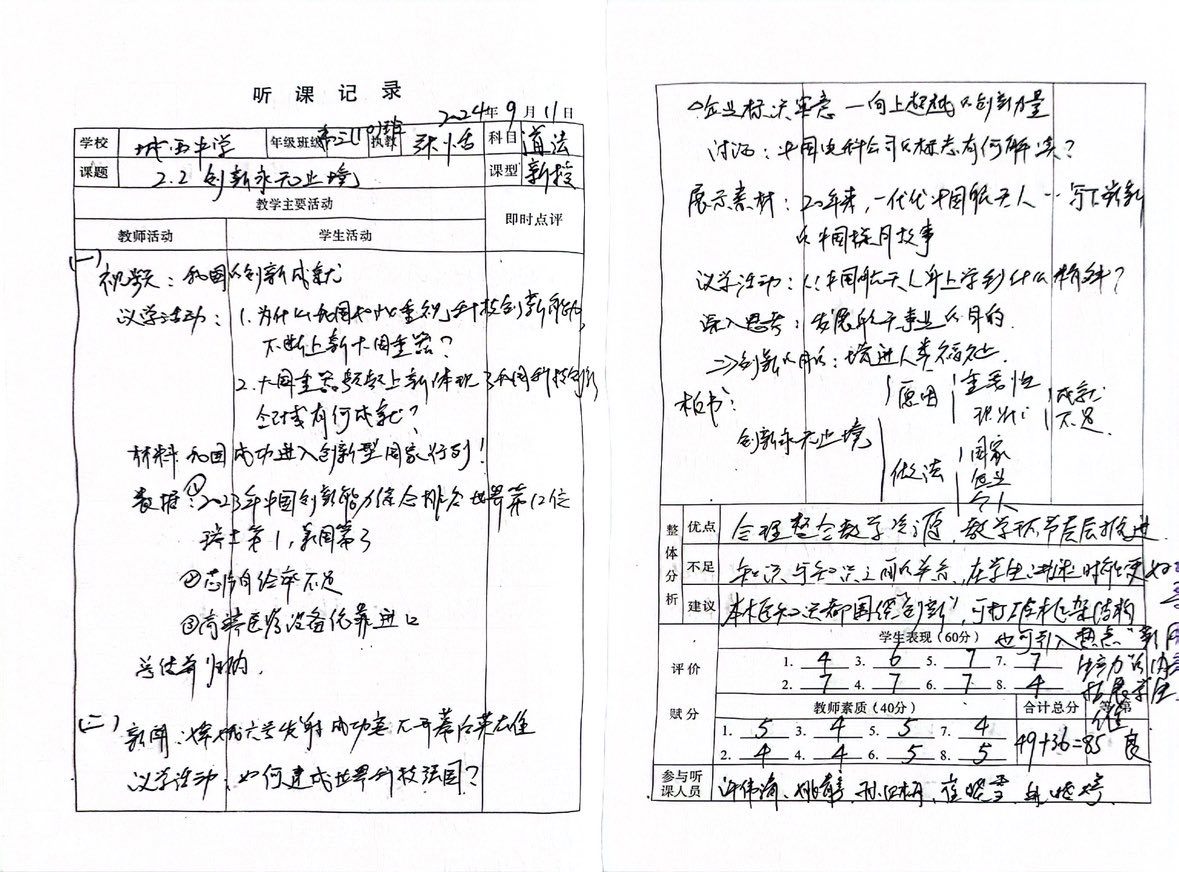 听课记录
2024年9月11日
学校 城西中学 年级班级 执教 科目 道法
课题 2.2 创新永无止境 课型 新授
教学主要活动 即时点评
教师活动 学生活动
(一)
视频：我国的创新成就
议学活动：1.为什么我国如此重视科技创新
不断上新大国重器？
2.大国重器频频上新体现了我国科技创新
有何成就？
材料 我国成功进入创新型国家行列！
数据：①2023年中国创新能力综合排名世界第12位
瑞士第1，美国第3
②芯片自给率不足
③高端医疗设备依靠进口
归纳．
(二) 新闻：嫦娥六号发射成功 幕后英雄
议学活动：如何建成世界科技强国？
企业标识寓意—向上超越的创新力量
讨论：中国 公司的标志有何解读？
展示素材：20年来，一代代中国航天人…写下崭新
的中国探月故事
议学活动：从中国航天人身上学到什么精神？
深入思考：发展航天事业的目的．
⇒创新的目的：增进人类福祉．
板书：
创新永无止境
原因 重要性
现状 成就
不足
做法 国家
企业
个人
整体分析
优点 合理整合教学资源，教学环节层层推进．
不足 知识与知识之间的关系，在学生讲述时能更好
建议 本框知识都围绕“创新”，可打 框架结构
也可引入热点“新
生产力”的内
拓展学生
思维
评价赋分
学生表现（60分）
1. 4 3. 6 5. 7 7. 7
2. 7 4. 7 6. 7 8. 4
教师素质（40分） 合计总分 等第
1. 5 3. 4 5. 5 7. 4
2. 4 4. 4 6. 5 8. 5
49+36=85 良
参与听课人员